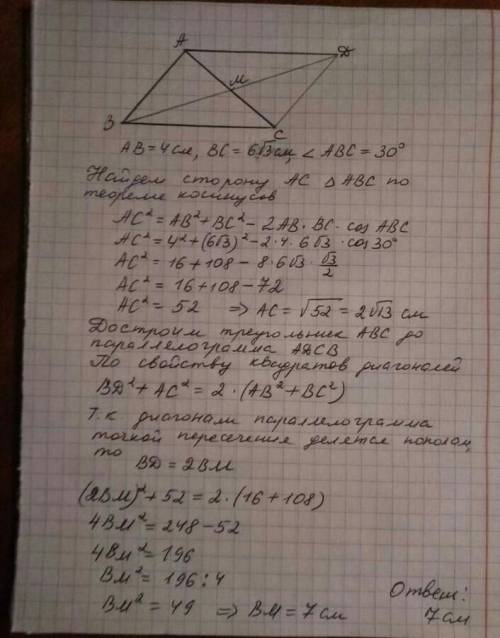 А
D
M
B
C
AB = 4 см, BC = 6√3 см, ∠ ABC = 30°
Найдем сторону AC △ ABC по
теореме косинусов
AC² = AB² + BC² - 2AB · BC · cos ABC
AC² = 4² + (6√3)² - 2 · 4 · 6√3 · cos 30°
AC² = 16 + 108 - 8 · 6√3 · √3/2
AC² = 16 + 108 - 72
AC² = 52 ⇒ AC = √52 = 2√13 см
Достроим треугольник ABC до
параллелограмма ADCB
По свойству квадратов диагоналей
BD² + AC² = 2 · (AB² + BC²)
Т.к диагонали параллелограмма
точкой пересечения делятся пополам,
то BD = 2BM
(2BM)² + 52 = 2 · (16 + 108)
4BM² = 248 - 52
4BM² = 196
BM² = 196 : 4
BM² = 49 ⇒ BM = 7 см
Ответ:
7 см